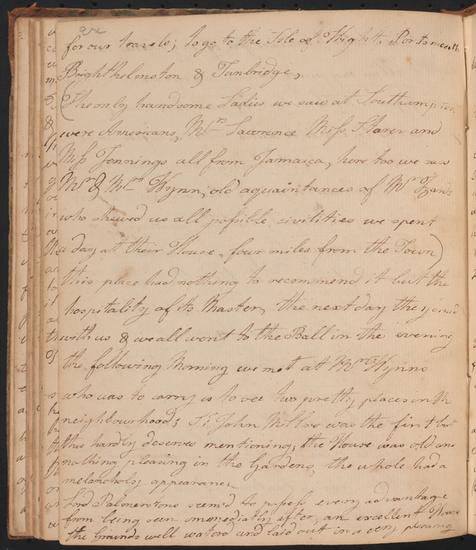 for our travels; to go to the Isle of Wight, Portsmouth
Brighthelmston & Tunbridge,
(The only handsome Ladies we saw at Southampton
were Americans, Mrs Lawrence Miss Slaver and
Miss Jennings all from Jamaica, here too we saw
Mr & Mrs Wynn, old aquaintances of Mr
who shewed us all possible civilities we spent
a day at their House four miles from the Town)
this place had nothing to recommend it but the
hospitality of its Master, the next day they join'd
with us & we all went to the Ball in the evening
the following Morning we met at Mr Wynns
who was to carry us to see two pretty places in the
neighbourhood; Sr John Millar was the first but
this hardly deserves mentioning, the House was old and
nothing pleasing in the Gardens, the whole had a
melancholy appearance,
Lord Palmerstons seem'd to possess every advantage
from being seen immediately after, an excellent House
the Grounds well water'd and laid out in a very pleasing